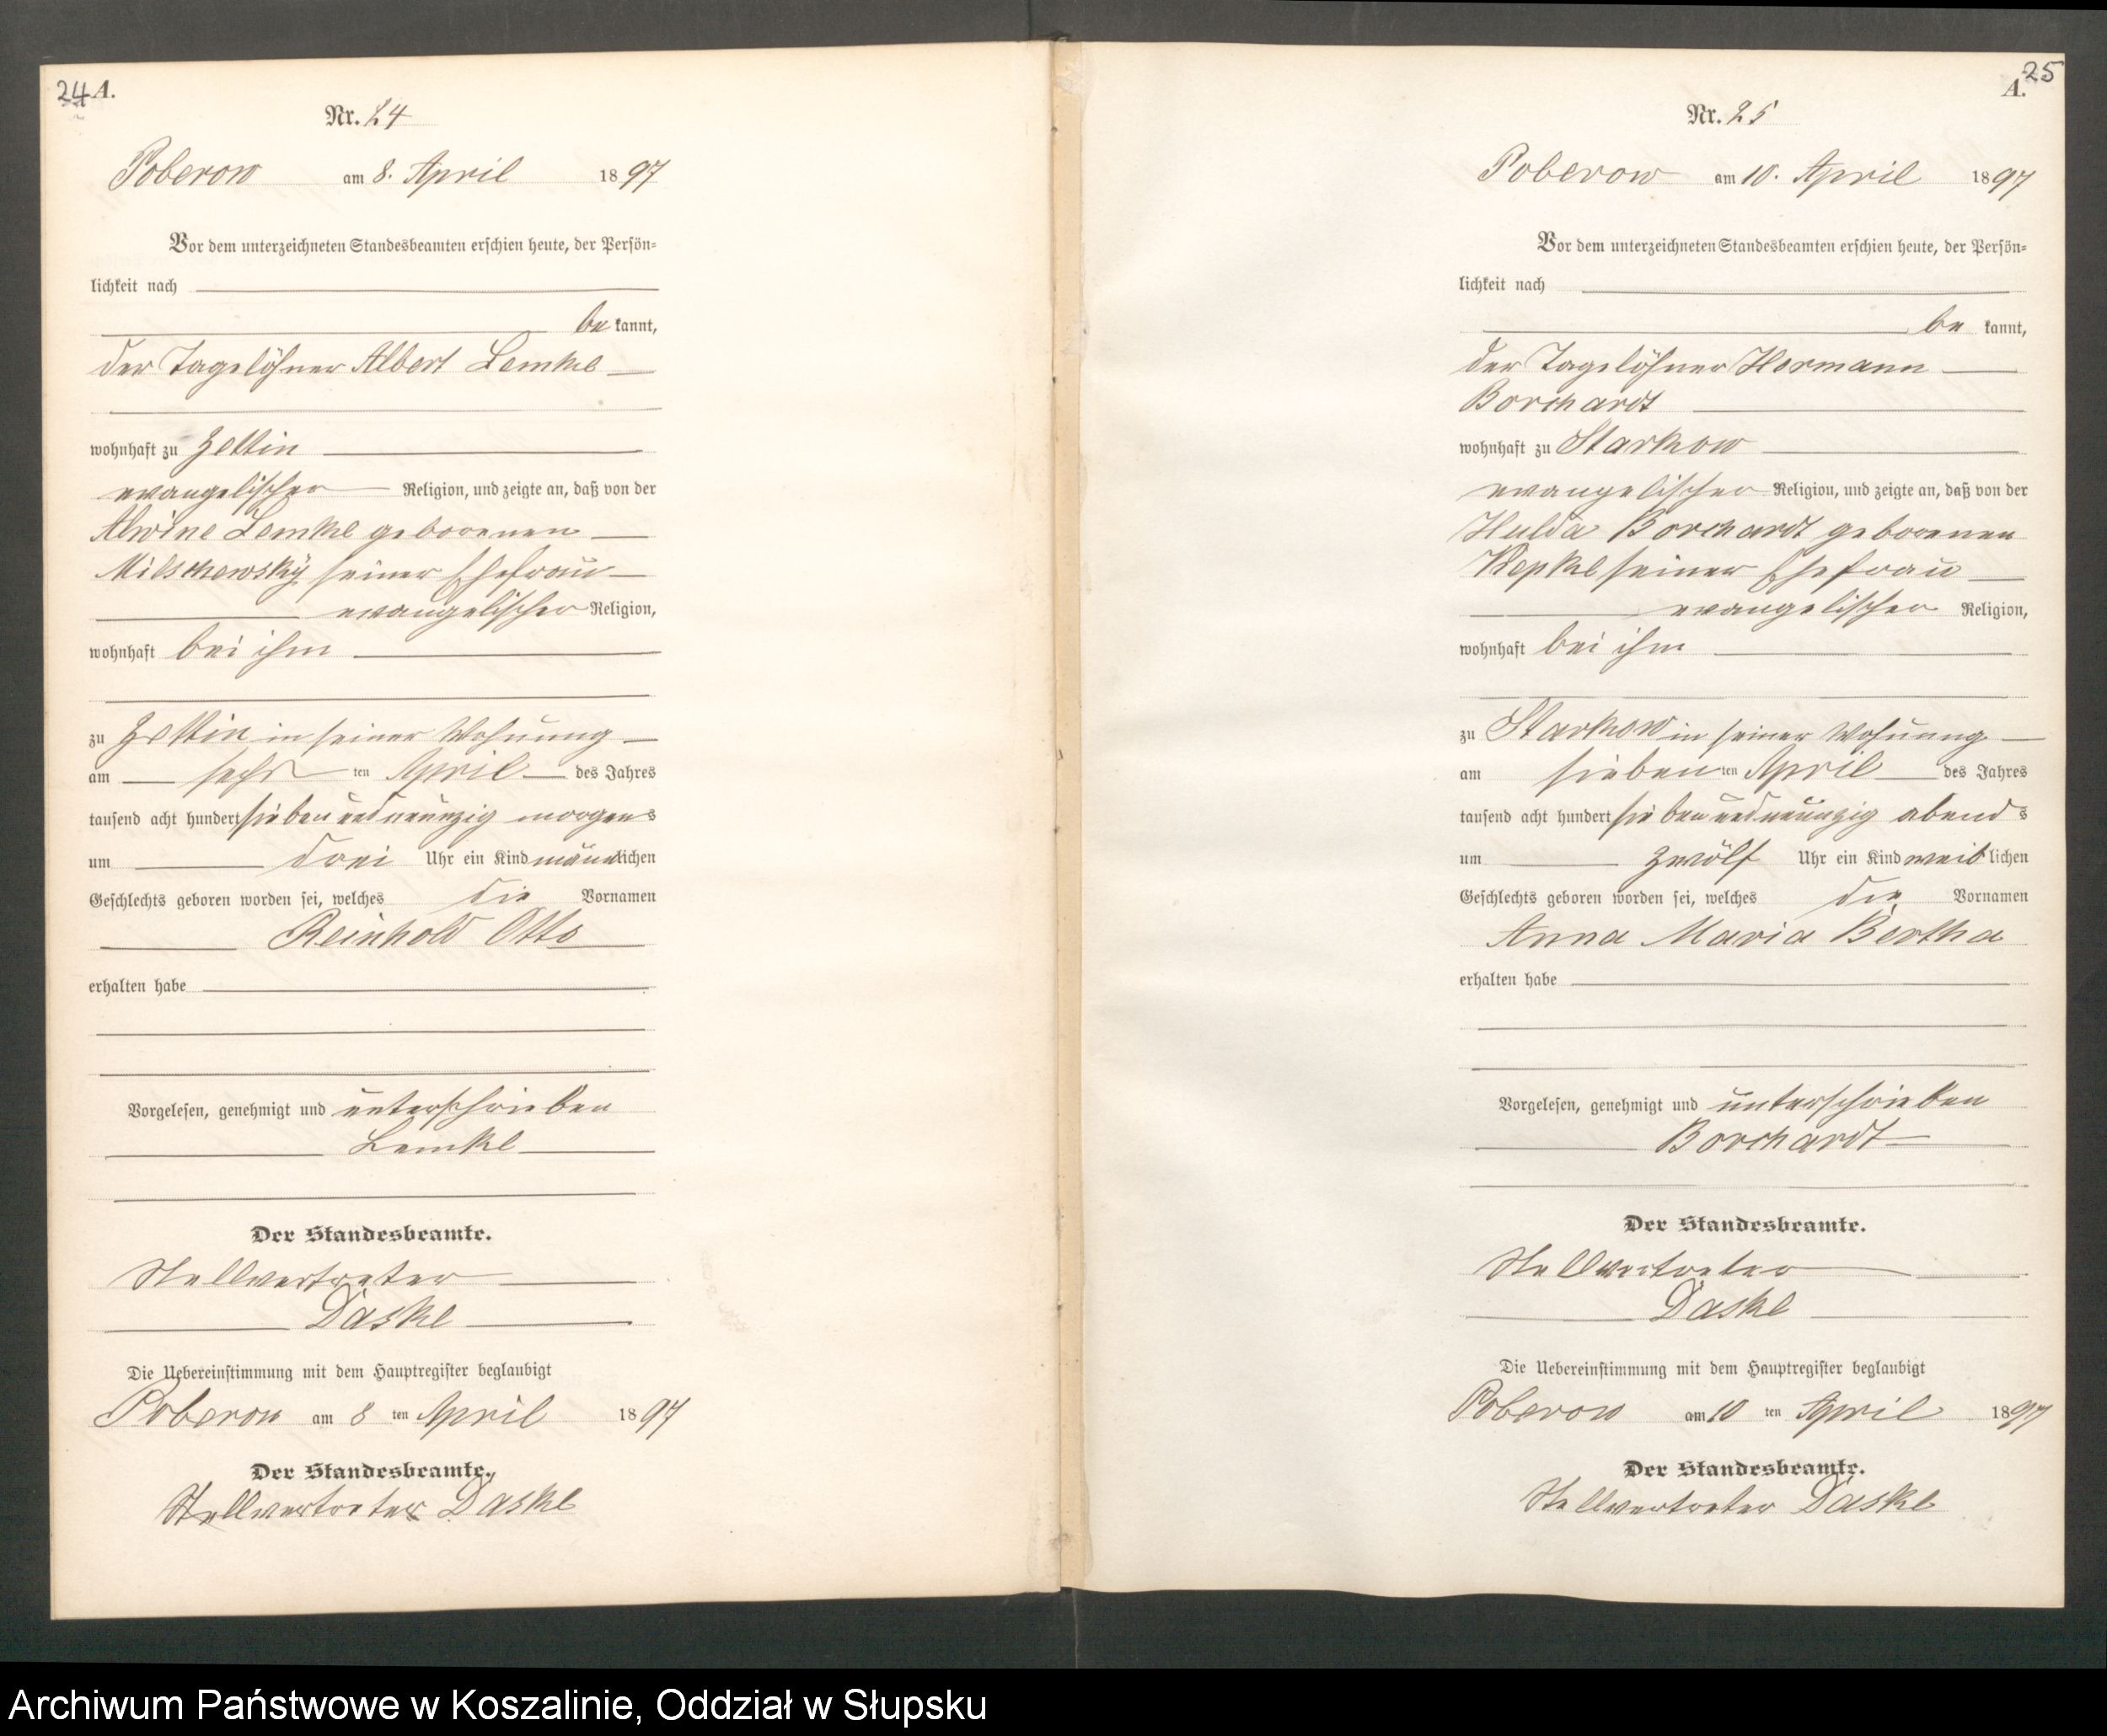 24 A.
Nr. 24
Poberow am 8. April 1897
Vor dem unterzeichneten Standesbeamten erschien heute, der Persön-
lichkeit nach
be kannt,
der Tagelöhner Albert Lemke
wohnhaft zu Zettin
evangelischer Religion, und zeigte an, daß von der
Alwine Lemke geborenen
Milschewsky seiner Ehefrau
evangelischer Religion,
wohnhaft bei ihm
zu Zettin in seiner Wohnung
am sechs ten April des Jahres
tausend acht hundert sieben und neunzig morgens
um drei Uhr ein Kind männlichen
Geschlechts geboren worden sei, welches die Vornamen
Reinhold Otto
erhalten habe
Vorgelesen, genehmigt und unterschrieben
Lemke
Der Standesbeamte.
Stellvertreter
Daske
Die Uebereinstimmung mit dem Hauptregister beglaubigt
Poberow am 8 ten April 1897
Der Standesbeamte.
Stellvertreter Daske
25
A.
Nr. 25
Poberow am 10. April 1897
Vor dem unterzeichneten Standesbeamten erschien heute, der Persön-
lichkeit nach
be kannt,
der Tagelöhner Hermann
Borchardt
wohnhaft zu Starkow
evangelischer Religion, und zeigte an, daß von der
Hulda Borchardt geborenen
seiner Ehefrau
evangelischer Religion,
wohnhaft bei ihm
zu Starkow in seiner Wohnung
am sieben ten April des Jahres
tausend acht hundert sieben und neunzig abends
um zwölf Uhr ein Kind weiblichen
Geschlechts geboren worden sei, welches die Vornamen
Anna Maria Bertha
erhalten habe
Vorgelesen, genehmigt und unterschrieben
Borchardt
Der Standesbeamte.
Stellvertreter
Daske
Die Uebereinstimmung mit dem Hauptregister beglaubigt
Poberow am 10 ten April 1897
Der Standesbeamte.
Stellvertreter Daske
Archiwum Państwowe w Koszalinie, Oddział w Słupsku